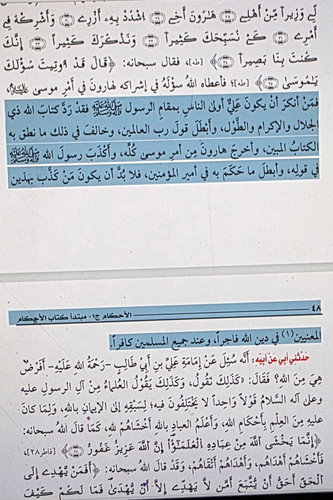 لِّي وَزِيرًا مِّنْ أَهْلِي ۝ هَارُونَ أَخِي ۝ اشْدُدْ بِهِ أَزْرِي ۝ وَأَشْرِكْهُ فِي
أَمْرِي ۝ كَيْ نُسَبِّحَكَ كَثِيرًا ۝ وَنَذْكُرَكَ كَثِيرًا ۝ إِنَّكَ
كُنتَ بِنَا بَصِيرًا ۝﴾ [طه]، فقال سبحانه: ﴿قَالَ قَدْ أُوتِيتَ سُؤْلَكَ
يَا مُوسَى ۝﴾ [طه]؛ فأعطاه الله سؤله في إشراكه هارون في أمر موسى ﷺ،
فمَنْ أنكرَ أنْ يكونَ عَلِيٌّ أولى الناسِ بمقامِ الرسول ﷺ فقد ردَّ كتابَ الله ذي
الجلال والإكرام والطَّوْل، وأَبْطَلَ قولَ رب العالمين، وخالفَ في ذلك ما نطق به
الكتابُ المبين، وأخرجَ هارونَ مِن أمرِ موسى كُلِّه، وأَكْذَبَ رسولَ الله ﷺ
في قوله، وأبطلَ ما حَكَمَ به في أمير المؤمنين، فلا بُدَّ أن يكونَ مَن كَذَّبَ بهذين
٤٨ الأحكام ج١- مبتدأ كتاب الأحكام
المعنيين(١) في دين الله فاجراً، وعند جميع المسلمين كافراً.
حَدَّثَنِي أَبِي عَنْ أَبِيهِ: أَنَّه سُئِلَ عَنْ إِمَامَةِ عَلِيِّ بنِ أَبِي طَالِبٍ -رَحْمَةُ اللهِ عَلَيْهِ- أَفَرْضٌ
هِيَ مِنَ اللَّهِ؟ فَقَالَ: كَذَلِكَ نَقُولُ، وَكَذَلِكَ يَقُولُ العُلَمَاءُ مِنْ آلِ الرسولِ عليه
وعلى آله السَّلامُ قَوْلاً وَاحِداً لا يَخْتَلِفُونَ فيه؛ لِسَبْقِهِ إِلَى الإيمانِ بِاللهِ، وَلِمَا كَانَ
عَلَيهِ مِنَ العِلْمِ بِأَحْكَامِ اللهِ، وَأَعْلَمُ العِبَادِ بِاللهِ أَخْشَاهُمْ لله، كَمَا قالَ اللهُ سبحانه:
﴿إِنَّمَا يَخْشَى اللَّهَ مِنْ عِبَادِهِ الْعُلَمَاءُ إِنَّ اللَّهَ عَزِيزٌ غَفُورٌ ۝﴾ [فاطر:٢٨]،
فَأَخْشَاهُمْ أَهْدَاهُم، وَأَهْدَاهُمْ أَتْقَاهُمْ، وَقَدْ قَالَ اللهُ سبحانه: ﴿أَفَمَن يَهْدِي إِلَى
الْحَقِّ أَحَقُّ أَن يُتَّبَعَ أَمَّن لَّا يَهِدِّي إِلَّا أَن يُهْدَى فَمَا لَكُمْ كَيْفَ